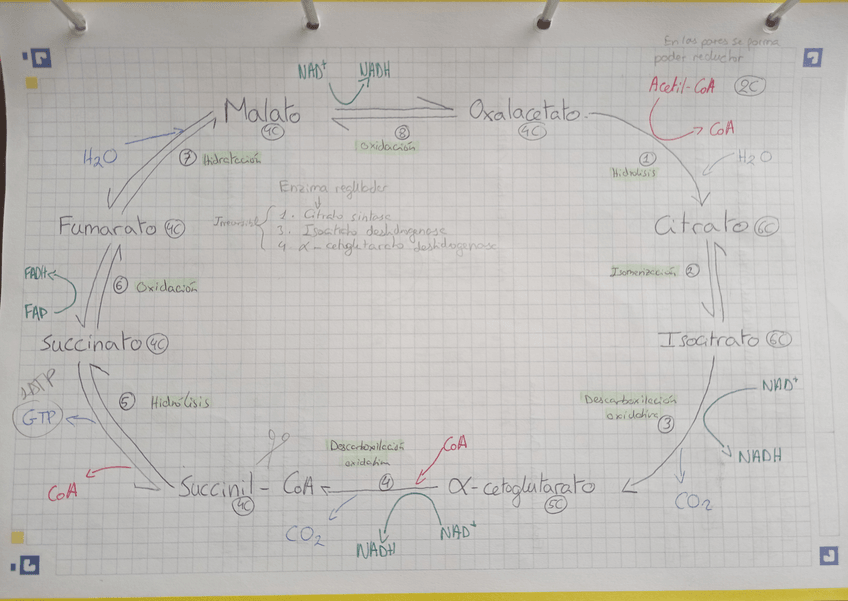 En las pares se forma
poder reductor
NAD⁺ NADH
Acetil-CoA 2C
Malato 4C
Oxalacetato 4C
CoA
8 Oxidación
H₂O
7 Hidratación
1 Hidrólisis
H₂O
Enzima regulador
1. Citrato sintasa
3. Isocitrato deshidogenasa
4. α-cetoglutarato deshidogenasa
Fumarato 4C
Citrato 6C
FADH₂
6 Oxidación
Isomerización 2
FAD
Succinato 4C
Isocitrato 6C
GTP
5 Hidrólisis
Descarboxilación
oxidativa 3
NAD⁺
NADH
CO₂
Descarboxilación
oxidativa
4
CoA
CoA
Succinil-CoA
4C
α-cetoglutarato
5C
CO₂
NADH NAD⁺